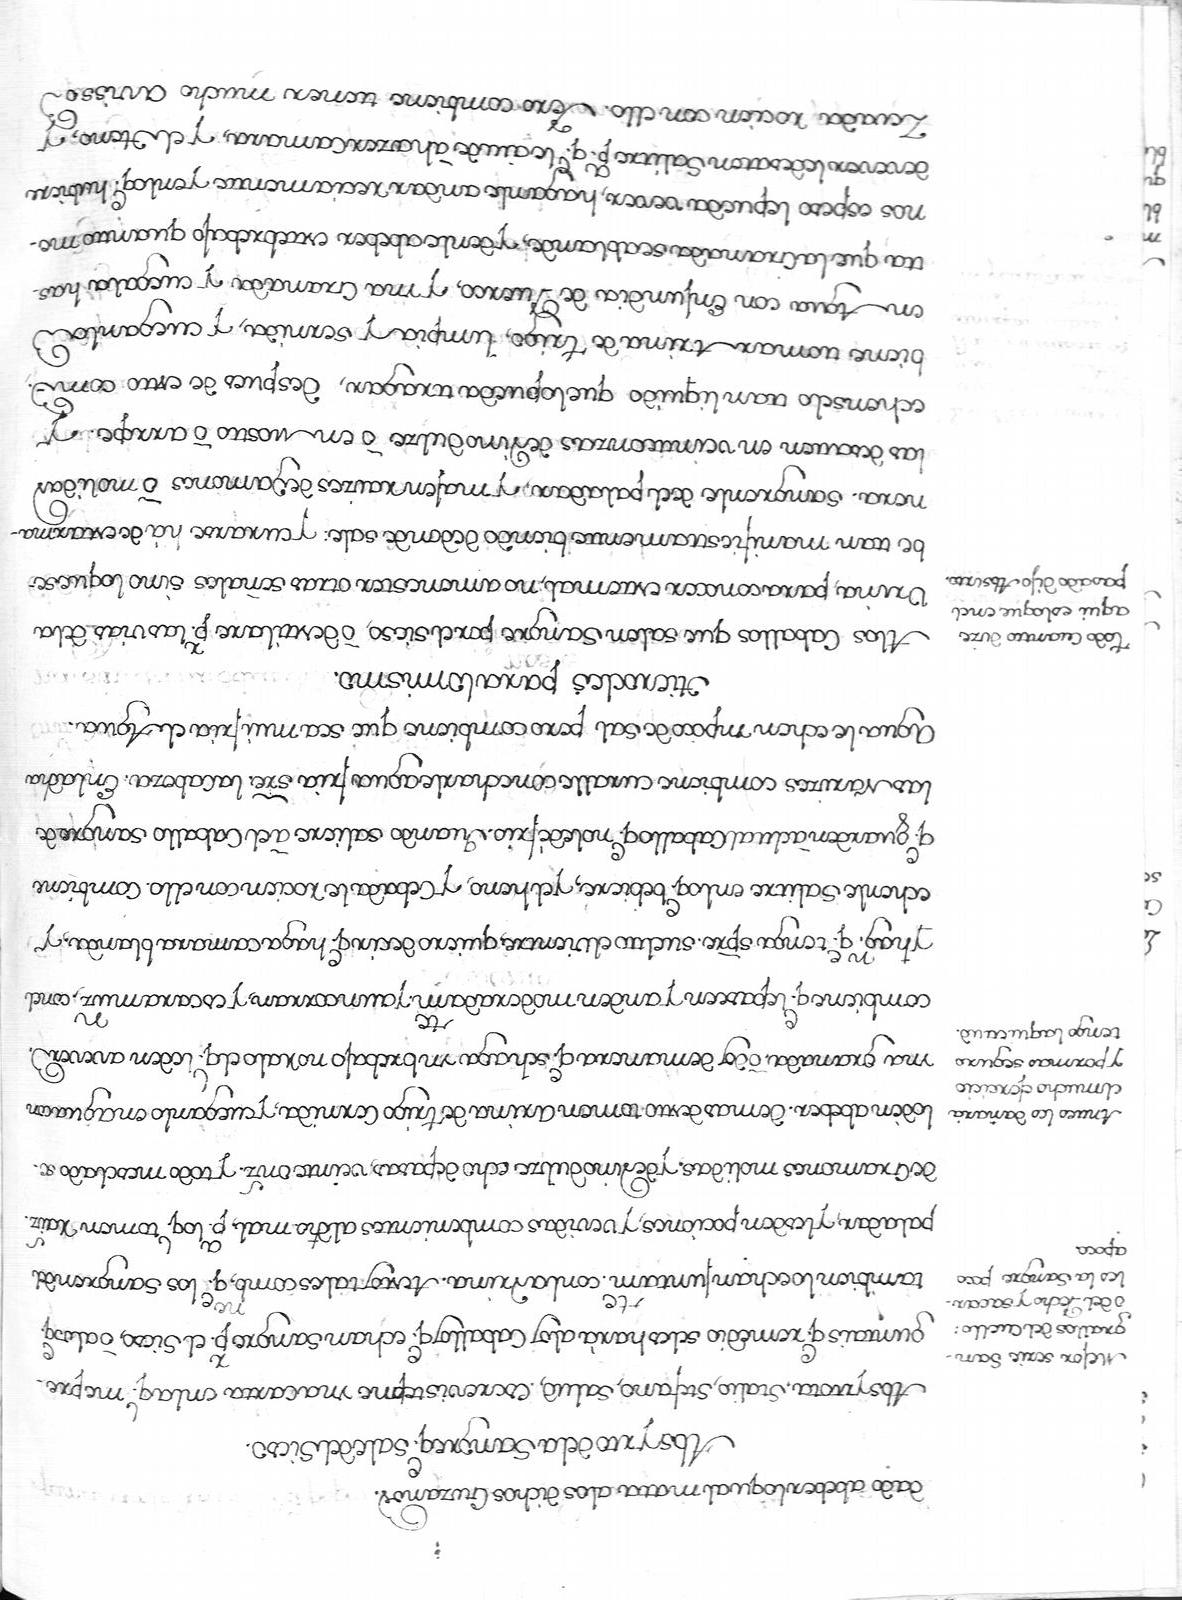 dado abeber loqual matta alos dichos Guzanos.
Absyrto dela Sangre q. sale del Sieso.
Absyrtota, Statio, Stefano, Salud, Escrevisteme una carta enlaq. me pre-
guntais q. remedio seles haria alos Caballos q. echan Sangre p. el Sieso, o alos q.
tambien lo echan juntam.te con la Urina. Aestos tales comb.ne q. los Sangren del
paladar, y les den pociones, y vevidas combenientes al dho mal, p.a loq. tomen Raiz.
de Gramones molidas, y de Vino dulze echo de pasas, veinte onz.s y todo mesclado se
lo den abeber. Demas desto tomen arina de trigo Cernida, y cueganlo en agua con
una granada, de manera q. se haga un brebajo no ralo el q. le den avever.
combiene q. le paseen y anden moderadam.te y aun
y hag.n q. tenga spre. suelto el Vientre, quiero decir q. haga camara blanda, y
echenle Salitre enloq. bebiere, y el heno, y Cebada le rocien con ello. Combiene
q. guarden a el tal Caballo q. no le dé frio. Quando saliere a el Caballo Sangre de
las Narizes combiene curalle con echarle agua fria sre. la Cabeza. En la dha
Agua le echen un poco de Sal pero combiene que sea mui fria el Agua.
Hierocles para lo mismo.
Alos Caballos que salen Sangre por el Sieso, o destilare p. las vias dela
Urina, para conocer este mal, no amenester otras señales sino loquese
be tan manifiestamente biendo dedonde sale: y curarse ha de esta ma-
nera. Sangrenle del paladar, y majen raizes de Gramones o molidas
las desaten en veinte onzas de Vino dulze o en mosto o arrope. Y
echenselo tan liquido que lo pueda tragar, despues de esto com-
biene tomar Arina de trigo, limpia y sernida, y cueganla
en Agua con Enjundia de Puerco, y una Granada y cuegala has-
ta que la Granada sea blanda, y denle abeber este brebajo quanto me-
nos espeso lepueda vever, haganle andar reciamente y enloq. hubiere
de vever le desaten Salitre p.a q. le aiude a hazer Camara, y el Heno, y
Zevada rocien con ello. Pero combiene tener mucho aviso
Mejor serie San-
grallos del Cuello:
o del Pecho y sacar-
les la Sangre poco
apoco
Antes les dañaria
el mucho ejercicio
y por mas seguro
tengo la quietud.
Todo Cuanto dize
aqui es loque en el
pasado dijo Absirto.